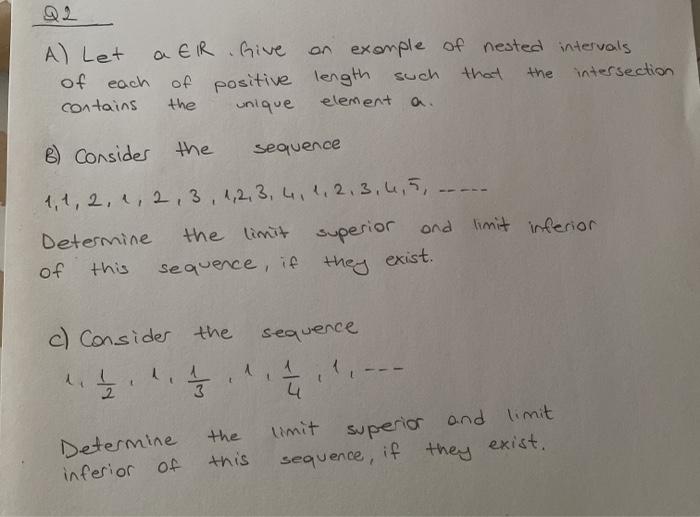 Q2
A) Let a ∈ ℝ. Give an example of nested intervals
of each of positive length such that the intersection
contains the unique element a.
B) Consider the sequence
1,1,2,1,2,3,1,2,3,4,1,2,3,4,5, ------
Determine the limit superior and limit inferior
of this sequence, if they exist.
c) Consider the sequence
1, 1/2, 1, 1/3, 1, 1/4, 1, ---
Determine the limit superior and limit
inferior of this sequence, if they exist.